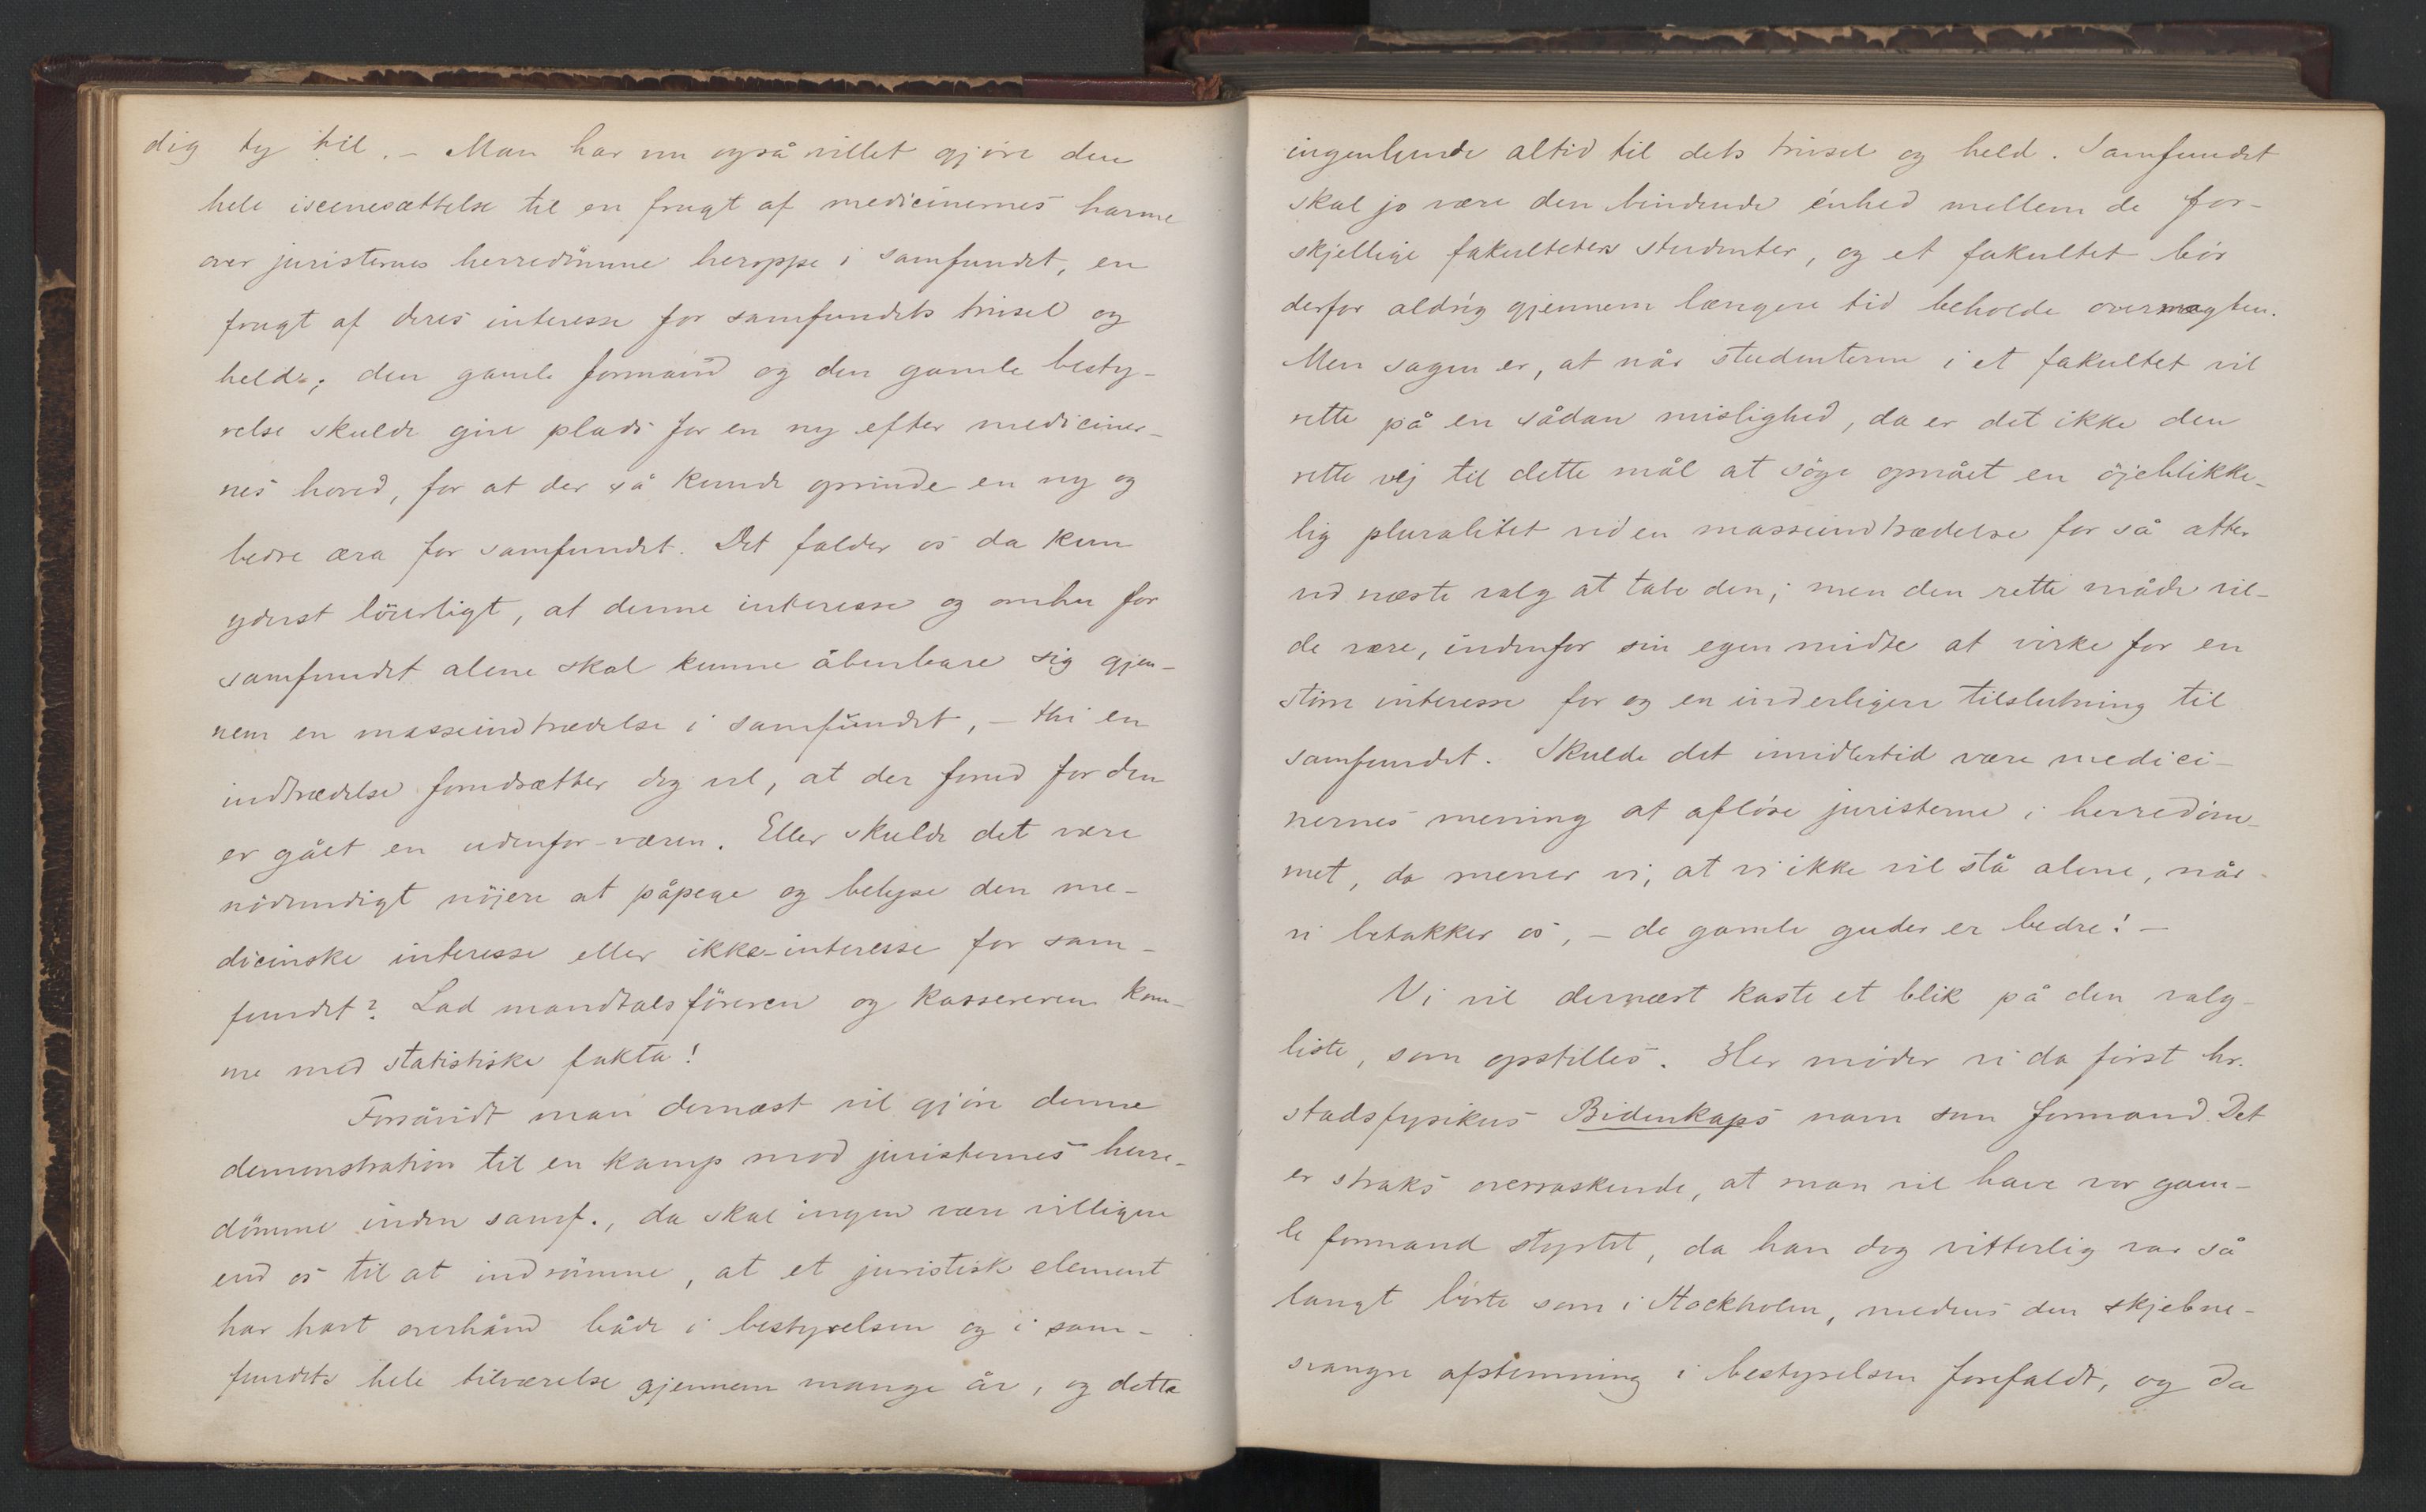 dig ty til. – Man har nu også villet gjöre den
hele iscenesættelse til en frugt af medicinernes harme
over juristernes herredömme heroppe i samfundet, en
frugt af deres interesse for samfundets trivsel og
held; den gamle formand og den gamle besty-
relse skulde give plads for en ny efter mediciner-
nes hoved, for at der så kunde oprinde en ny og
bedre æra for samfundet. Det falder os da kun
yderst löierligt, at denne interesse og omhu for
samfundet alene skal kunne åbenbare sig gjen-
nem en masseindtrædelse i samfundet, – thi en
indtrædelse forudsætter dog vel, at der forud for den
er gået en udenfor-væren. Eller skulde det være
nödvendigt nöjere at påpege og belyse den me-
dicinske interesse eller ikke-interesse for sam-
fundet? Lad mandtalsföreren og kassereren kom-
me med statistiske fakta!
Forsåvidt man dernæst vil gjöre denne
demonstration til en kamp mod juristernes herre-
dömme inden samf., da skal ingen være villigere
end os til at indrömme, at et juristisk element
har havt overhånd både i bestyrelsen og i sam-
fundets hele tilværelse gjennem mange år, og dette
ingenlunde altid til dets trivsel og held. Samfundet
skal jo være den bindende enhed mellem de for-
skjellige fakulteters studenter, og et fakultet bör
derfor aldrig gjennem længere tid beholde overmagten.
Men sagen er, at når studenterne i et fakultet vil
rette på en sådan mislighed, da er det ikke den
rette vej til dette mål at söge opnået en öjeblikke-
lig pluralitet ved en masseindtrædelse for så atter
ved næste valg at tabe den; men den rette måde vil-
de være, indenfor sin egen midte at virke for en
större interesse for og en inderligere tilslutning til
samfundet. Skulde det imidlertid være medici-
nernes mening at aflöse juristerne i herredöm-
met, da mener vi, at vi ikke vil stå alene, når
vi betakker os, – de gamle guder er bedre! –
Vi vil dernæst kaste et blik på den valg-
liste, som opstilles. Her möder vi da först hr.
stadsfysikus Bidenkaps navn som formand. Det
er straks overraskende, at man vil have vor gam-
le formand styrtet, da han dog vitterlig var så
langt borte som i Stockholm, medens den skjebne-
svangre afstemning i bestyrelsen forefaldt, og da